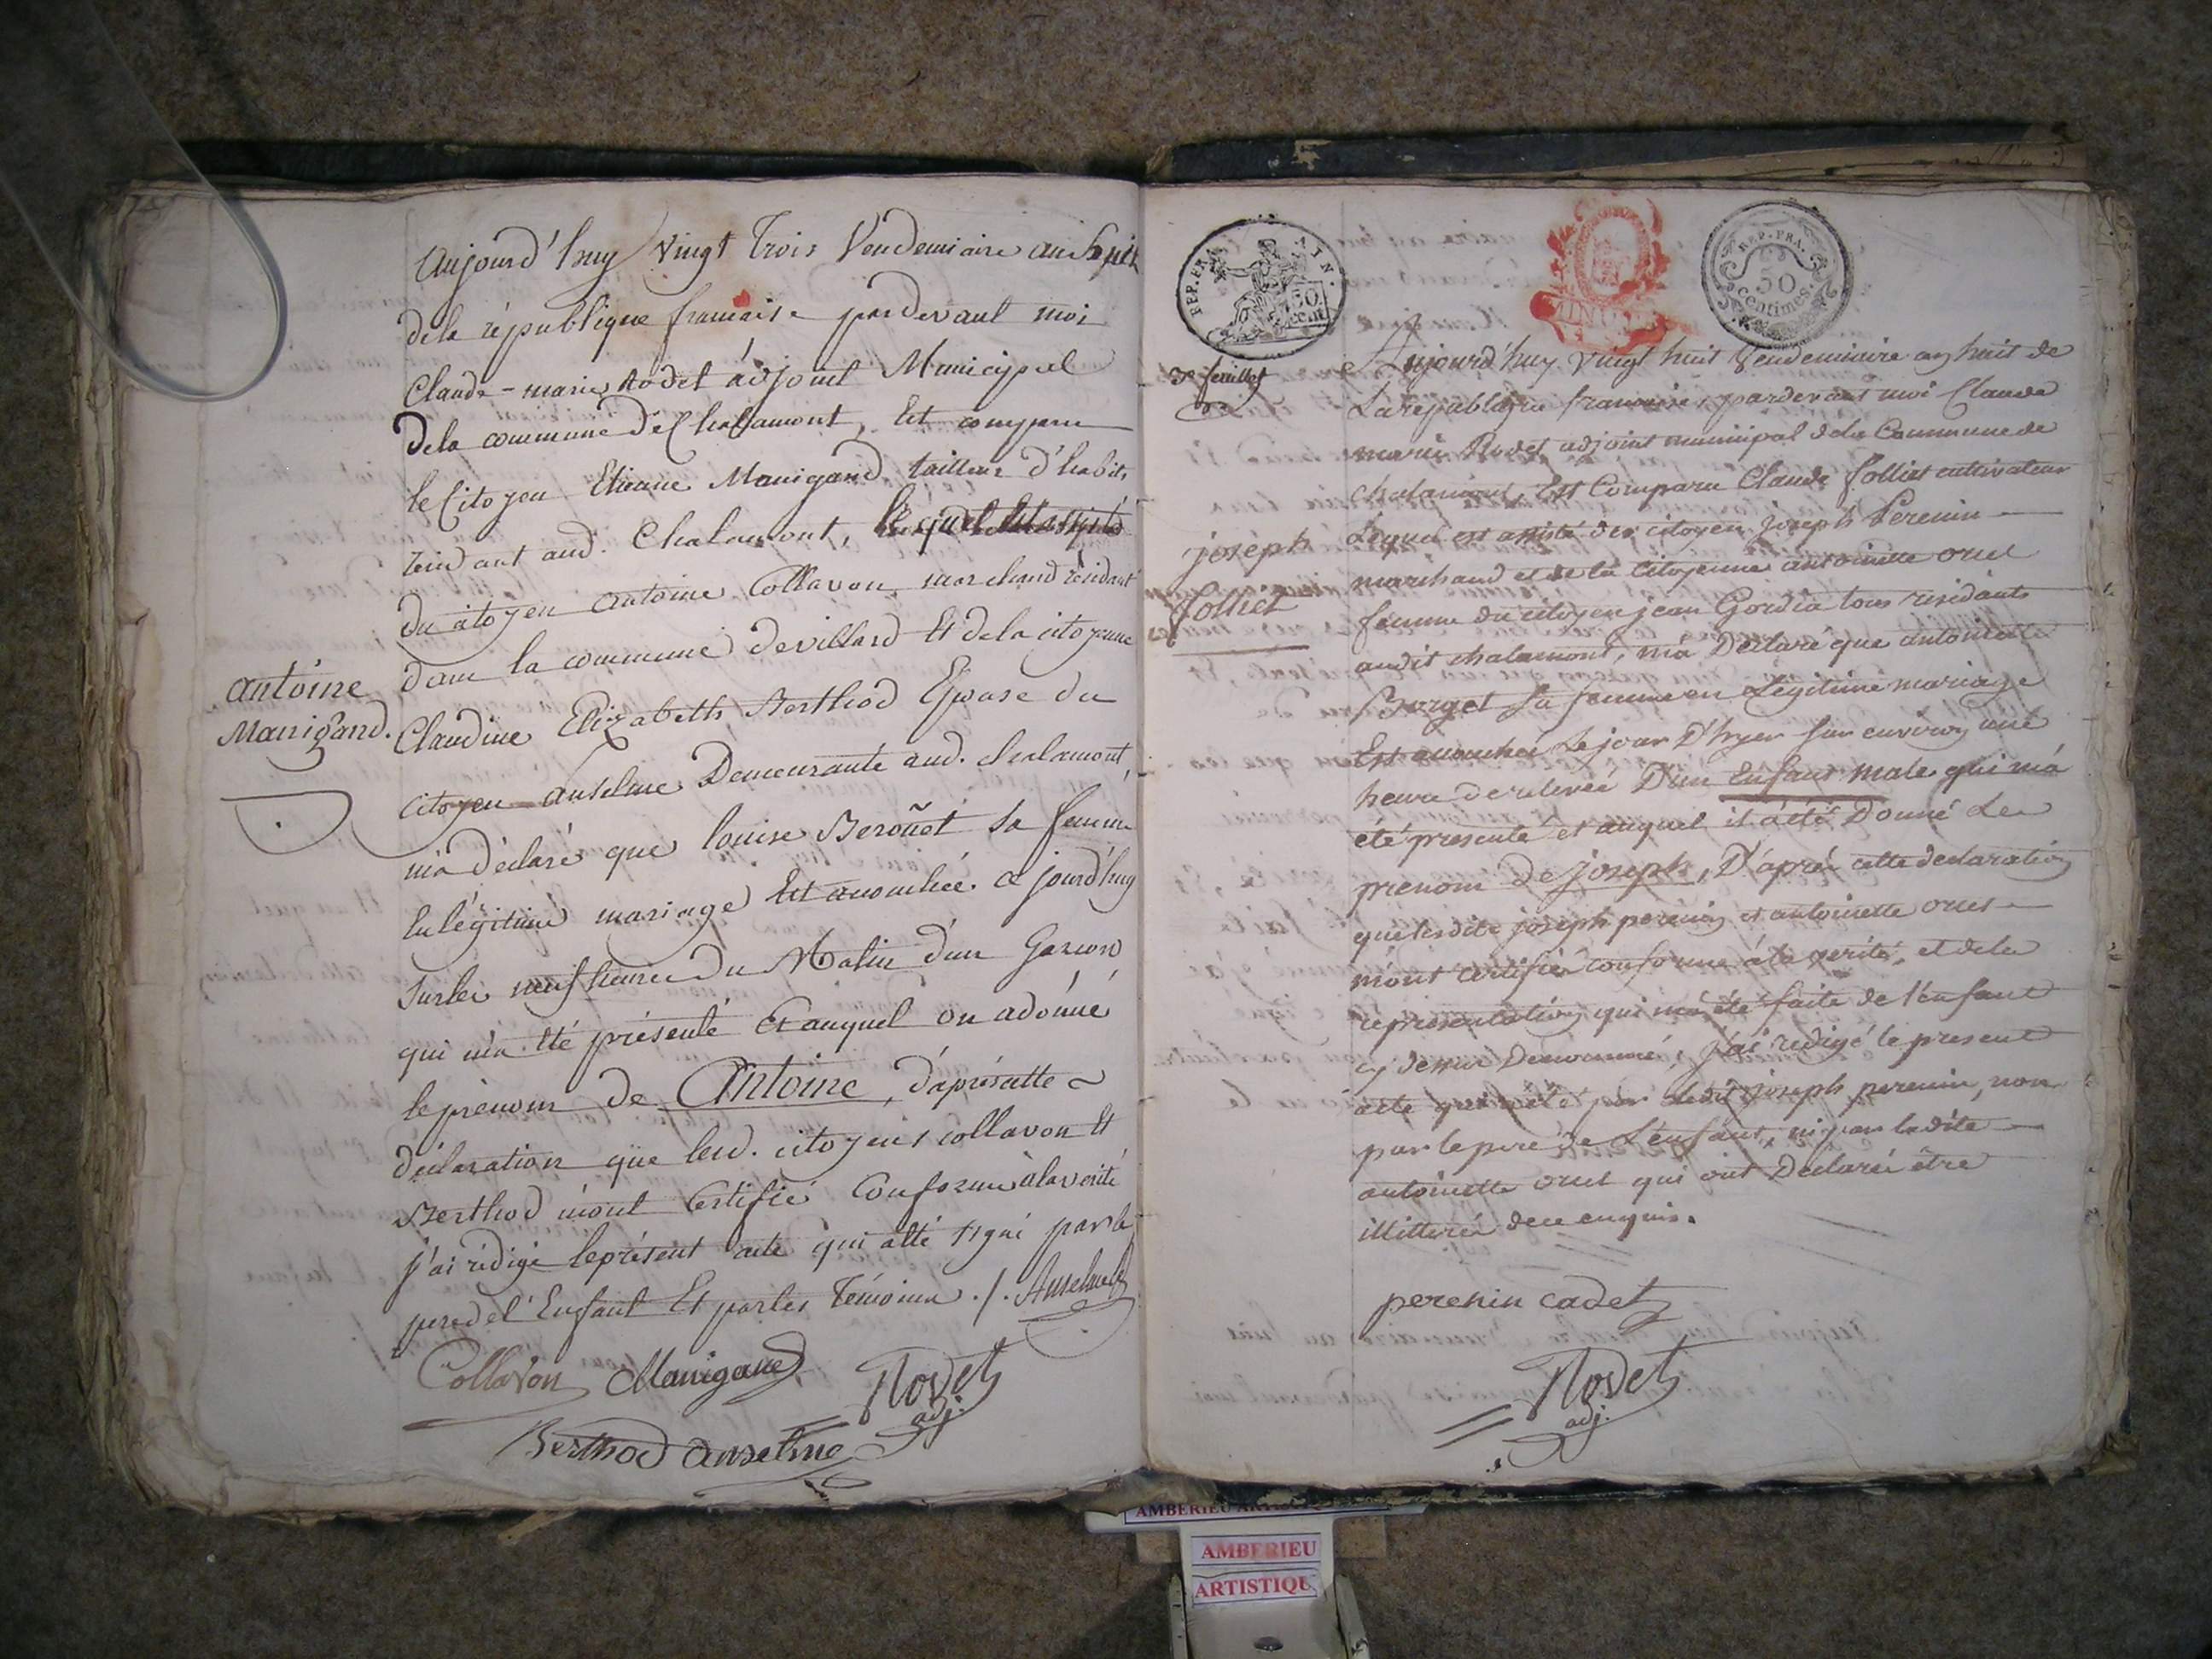 Aujourd'huy Vingt Trois Vendemiaire an huit
dela république francaise pardevant moi
Claude-marie Rodet adjoint Municipal
dela commune de Chalamont, Est comparu
le Citoyen Etienne Manigand tailleur d'habits
résidant aud. Chalamont, lequel est assisté
du citoyen antoine Collavon, marchand résidant
dans la commune de villard Et dela citoyenne
Claudine Elizabeth Berthod Epouse du
citoyen anselme Demeurante aud. chalamont,
m'a déclaré que louise Beroñot sa femme
En légitime mariage Est accouchée ce jourd'huy
sur les neuf heures du Matin d'un Garcon
qui m'a été présenté Et auquel on a donné
le prénom de Antoine, d'après cette
déclaration que lesd. citoyens collavon Et
Berthod m'ont Certifié Conforme à la vérité
j'ai rédigé le présent acte qui a été signé par le
pere de l'Enfant Et par les Témoins ./. Anselme
Collavon Manigand Rodet
adj.
Berthod anselme
antoine
Manigand.
REP. FRA. AIN.
50
cent.
REP. FRA.
50
centimes.
3e feuillet
Aujourd'huy vingt huit Vendemiaire an huit de
La république francaise, pardevant moi Claude
marie Rodet adjoint municipal de la Commune de
chalamont, Est Comparu Claude folliet cultivateur
Lequel est assisté des citoyen joseph Perenin
marchand et de la Citoyenne antoinette oruel
femme du citoyen jean Gordia tous résidants
audit chalamont, m'a Déclaré que antoinette
Borget sa femme en Légitime mariage
Est accouchée Le jour D'hyer sur environ une
heure de relevée D'un Enfant male qui m'a
été presenté et auquel il a été Donné Le
prenom de joseph, D'après cette declaration
que lesdits joseph perenin et antoinette oruel
m'ont certifié conforme à la verité, et de la
representation qui m'a été faite de l'enfant
cy dessus Denommé, j'ai redigé le present
acte par ledit joseph perenin, non
par le pere de L'enfant, ni par ladite
antoinette oruel qui ont Declaré être
illitterés de ce enquis.
perenin cadet
Rodet
adj.
joseph
folliet
AMBERIEU ARTISTIQUE
AMBERIEU
ARTISTIQU